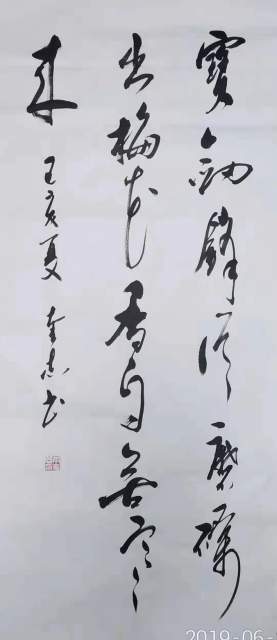 寶劍鋒從磨礪
出梅花香自苦寒
来
己亥夏 书
2019-06-